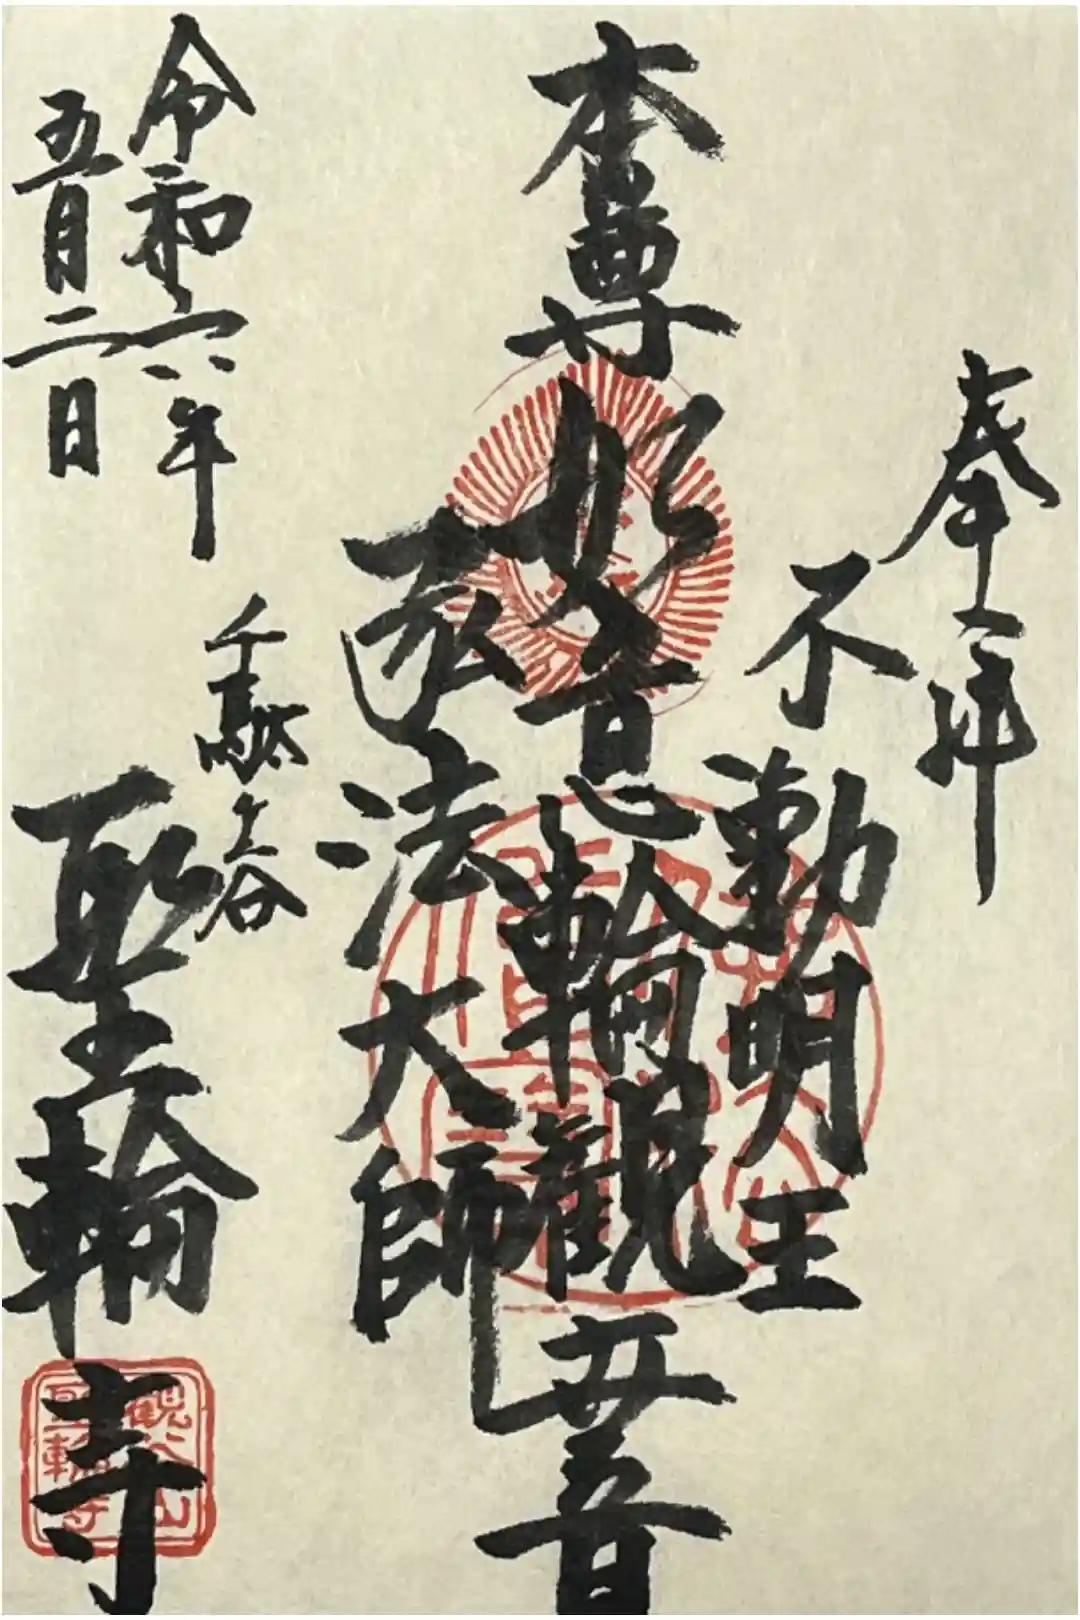 奉拝
不動明王
本尊如意輪観世音
弘法大師
千駄ヶ谷
聖輪寺
令和六年
五月二日
観谷山
聖輪寺